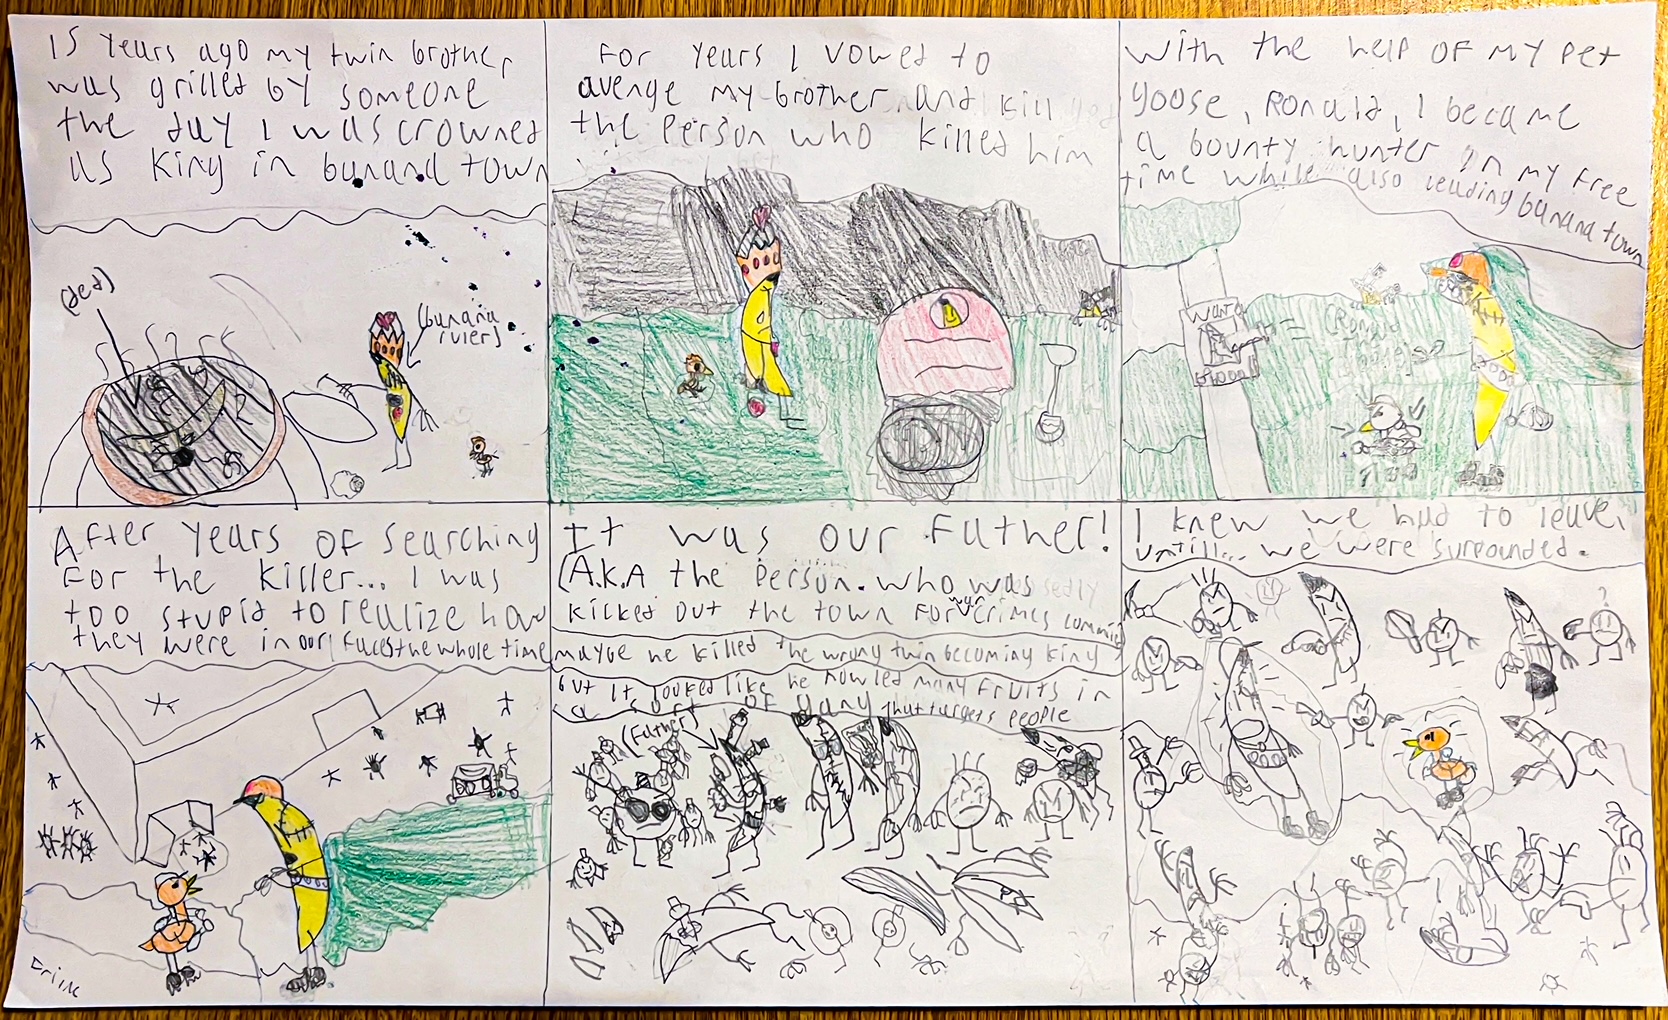 15 years ago my twin brother
was grilled by someone
the day I was crowned
as king in banana town
(ded)
(banana
ruler)
For years I vowed to
avenge my brother and kill
the person who killed him
With the help of my pet
goose, Ronald, I became
a bounty hunter in my free
time while also leading banana town
After years of searching
for the killer... I was
too stupid to realize how
they were in our faces the whole time
It was our father!
(A.K.A the person who was
kicked out the town for war crimes
maybe he killed the wrong twin becoming king
but it looked like he now led many fruits in
a sort of gang that targets people
(Father)
I knew we had to leave,
untill... we were surrounded.